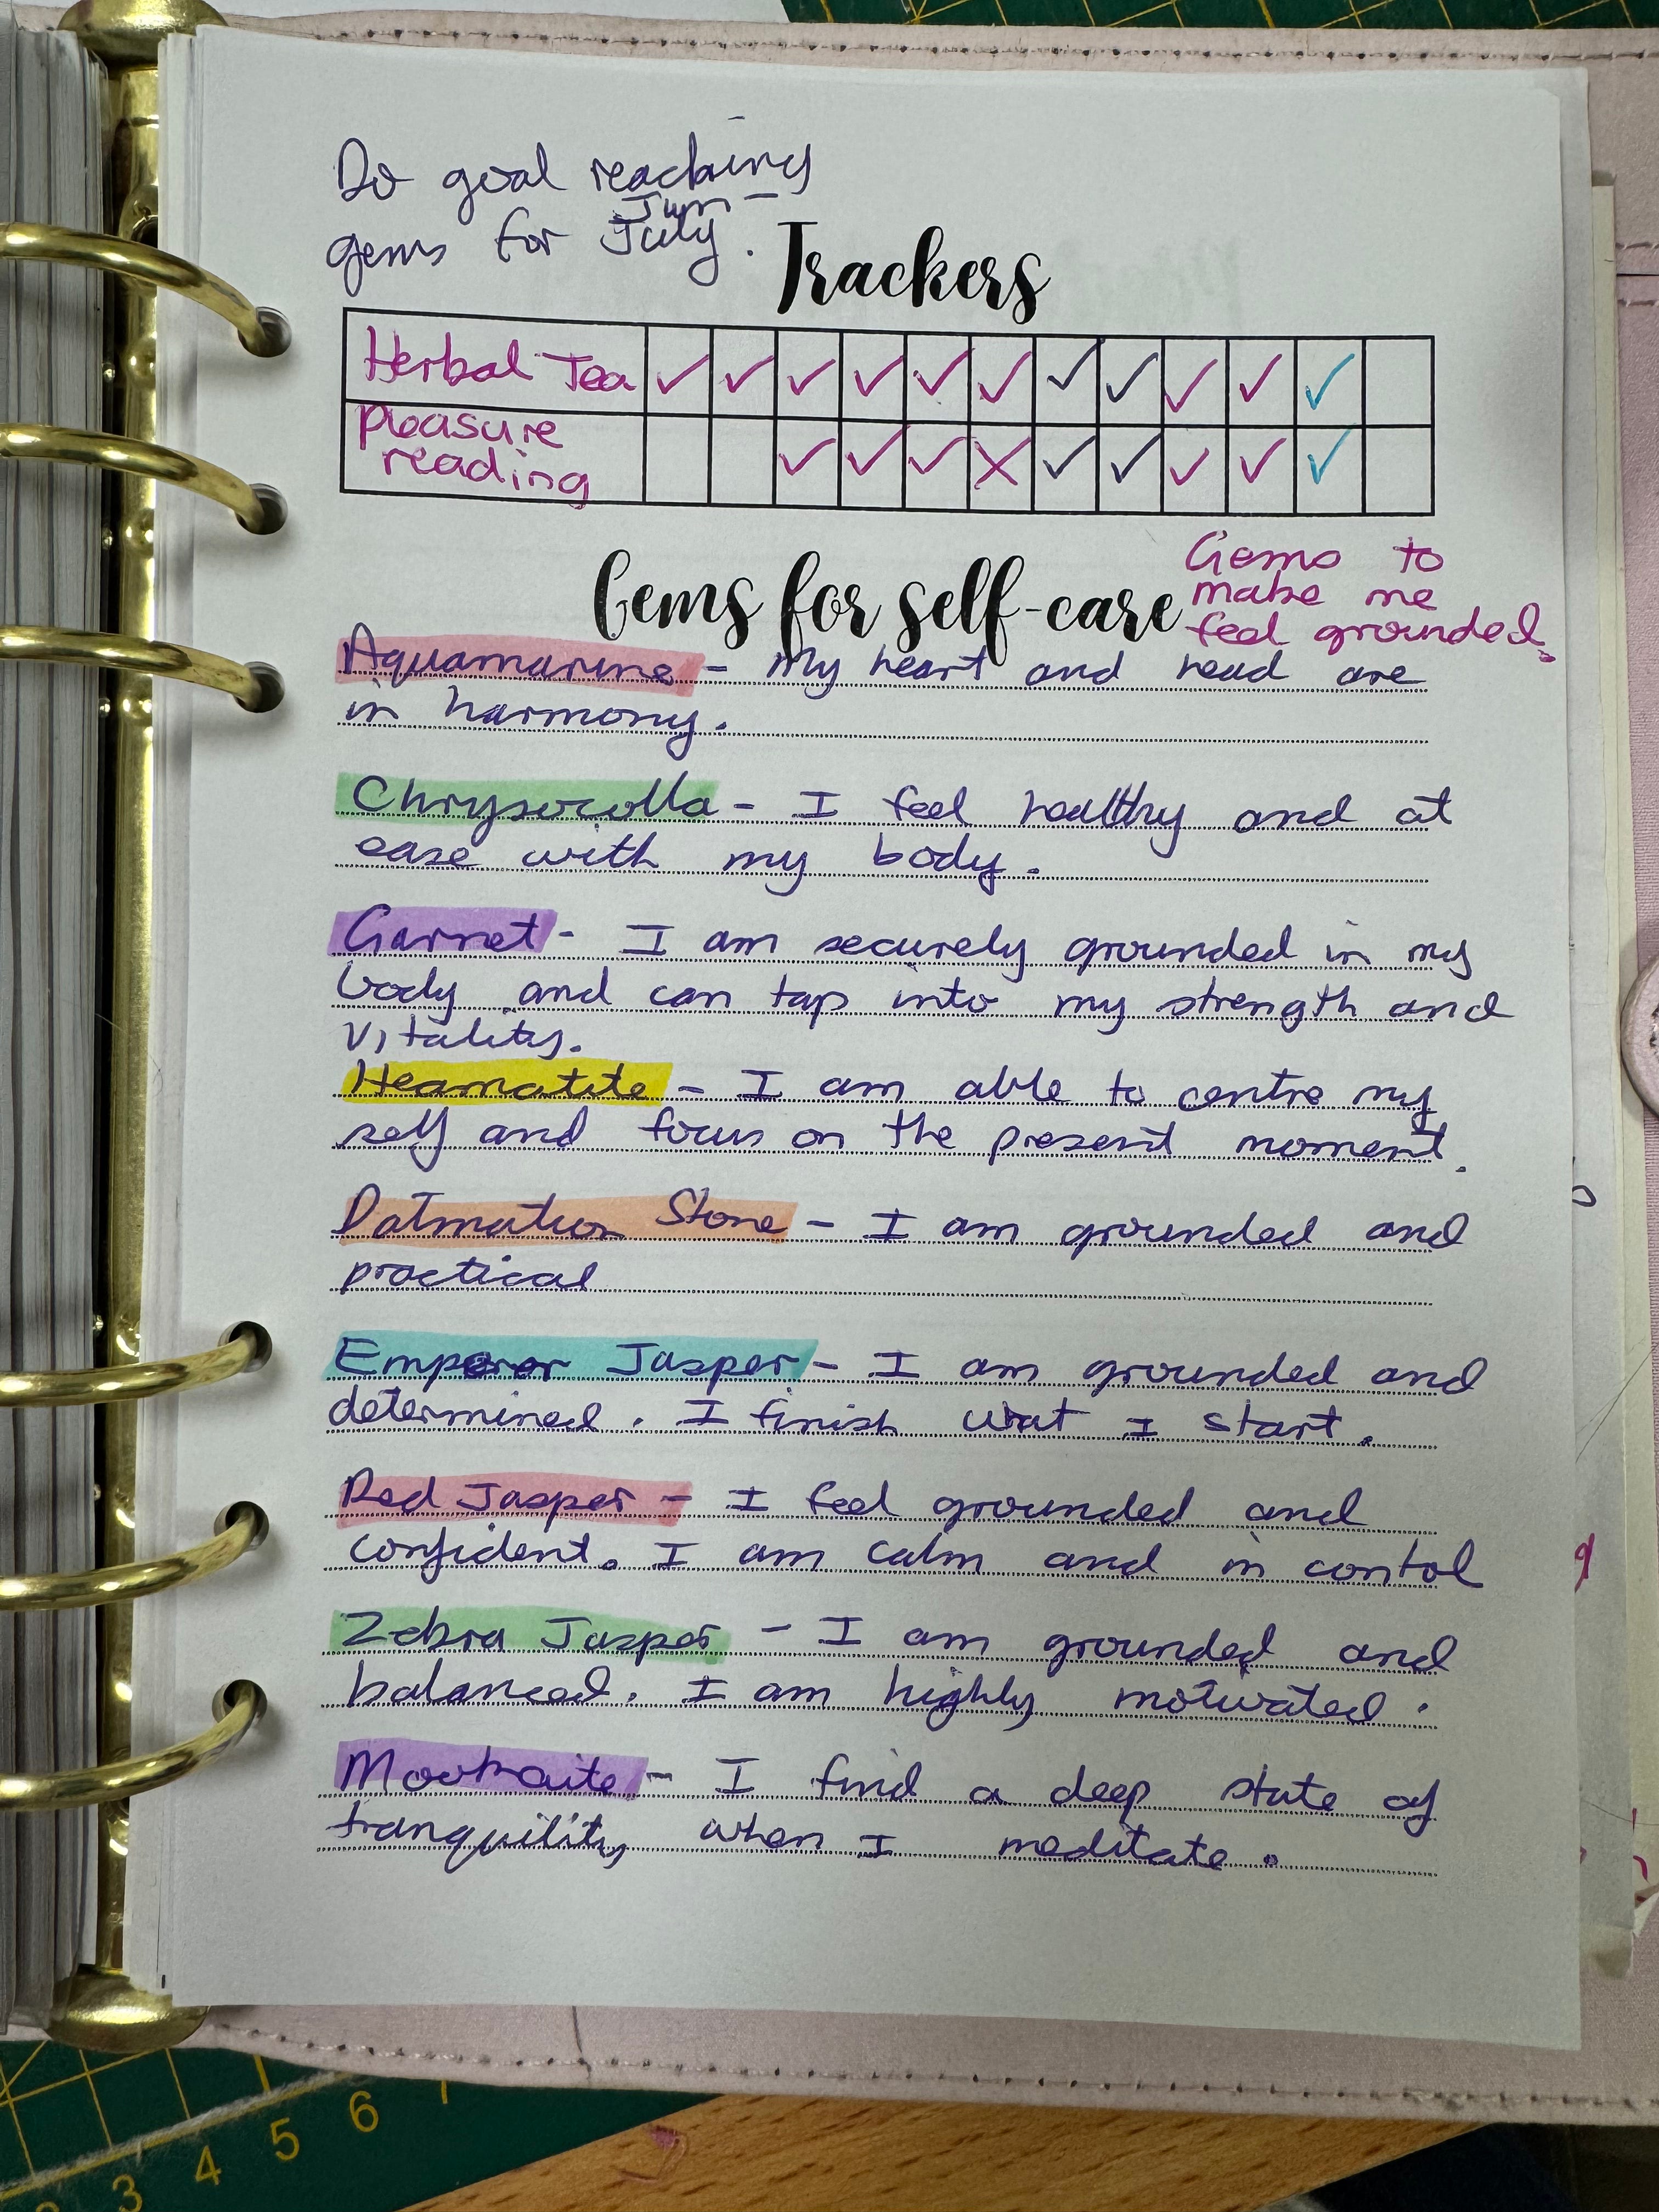 Do goal reaching
Jun -
gems for July.
Trackers
Herbal Tea ✓ ✓ ✓ ✓ ✓ ✓ ✓ ✓ ✓ ✓ ✓
Pleasure
reading ✓ ✓ ✓ X ✓ ✓ ✓ ✓ ✓
Gems for self-care
Gems to
make me
feel grounded.
Aquamarine - My heart and head are
in harmony.
Chrysocolla - I feel healthy and at
ease with my body.
Garnet - I am securely grounded in my
body and can tap into my strength and
vitality.
Heamatite - I am able to centre my
self and focus on the present moment.
Dalmation Stone - I am grounded and
practical
Emperor Jasper - I am grounded and
determined. I finish wat I start.
Red Jasper - I feel grounded and
confident. I am calm and in contol
Zebra Jasper - I am grounded and
balanced. I am highly motivated.
Mookaite - I find a deep state of
tranquility when I meditate.
3 4 5 6